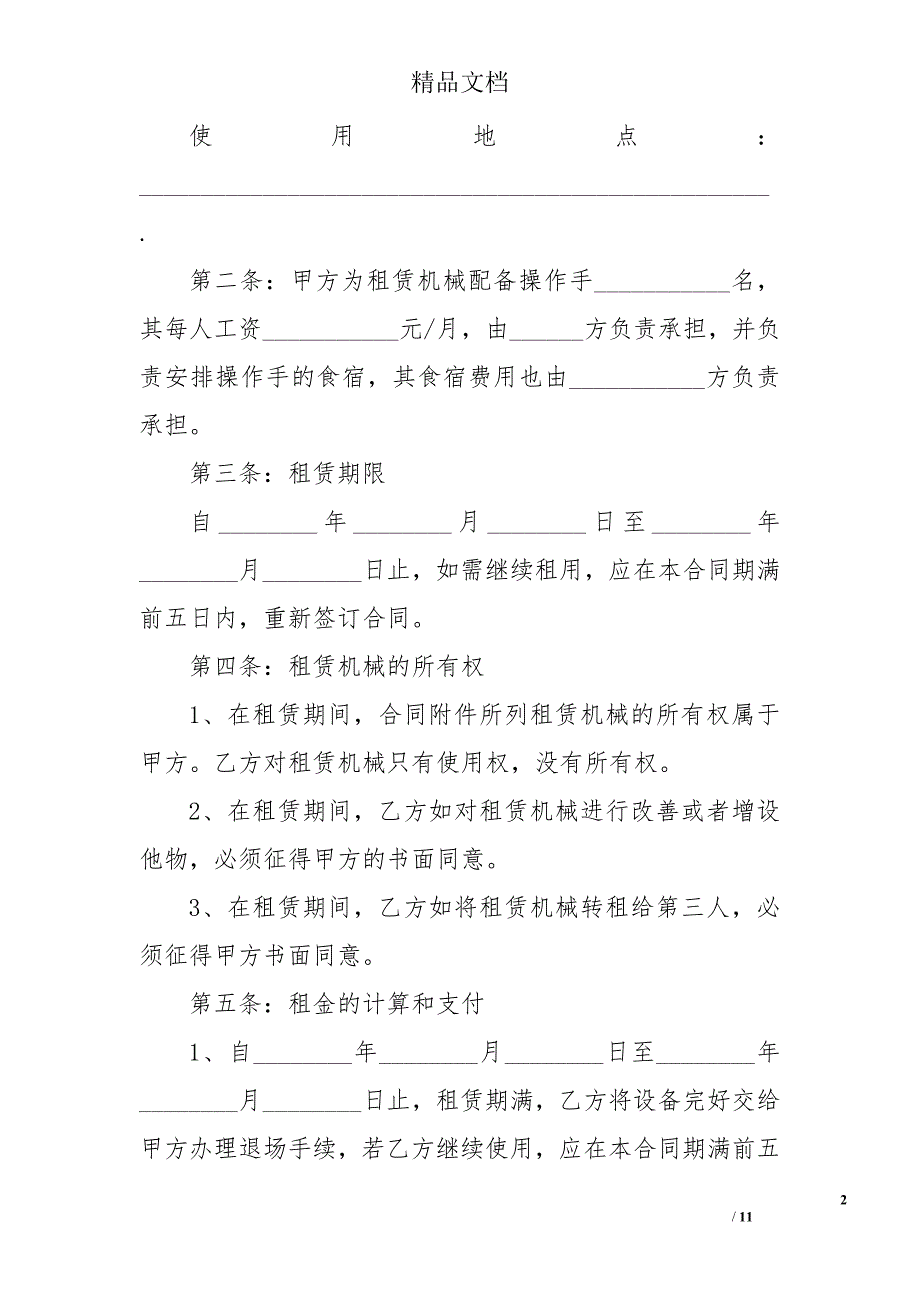 精品文档
使用地点：
___________________________________________________
.
第二条：甲方为租赁机械配备操作手___________名，
其每人工资___________元/月，由______方负责承担，并负
责安排操作手的食宿，其食宿费用也由___________方负责
承担。
第三条：租赁期限
自________年________月________日至________年
________月________日止，如需继续租用，应在本合同期满
前五日内，重新签订合同。
第四条：租赁机械的所有权
1、在租赁期间，合同附件所列租赁机械的所有权属于
甲方。乙方对租赁机械只有使用权，没有所有权。
2、在租赁期间，乙方如对租赁机械进行改善或者增设
他物，必须征得甲方的书面同意。
3、在租赁期间，乙方如将租赁机械转租给第三人，必
须征得甲方书面同意。
第五条：租金的计算和支付
1、自________年________月________日至________年
________月________日止，租赁期满，乙方将设备完好交给
甲方办理退场手续，若乙方继续使用，应在本合同期满前五
2
/ 11